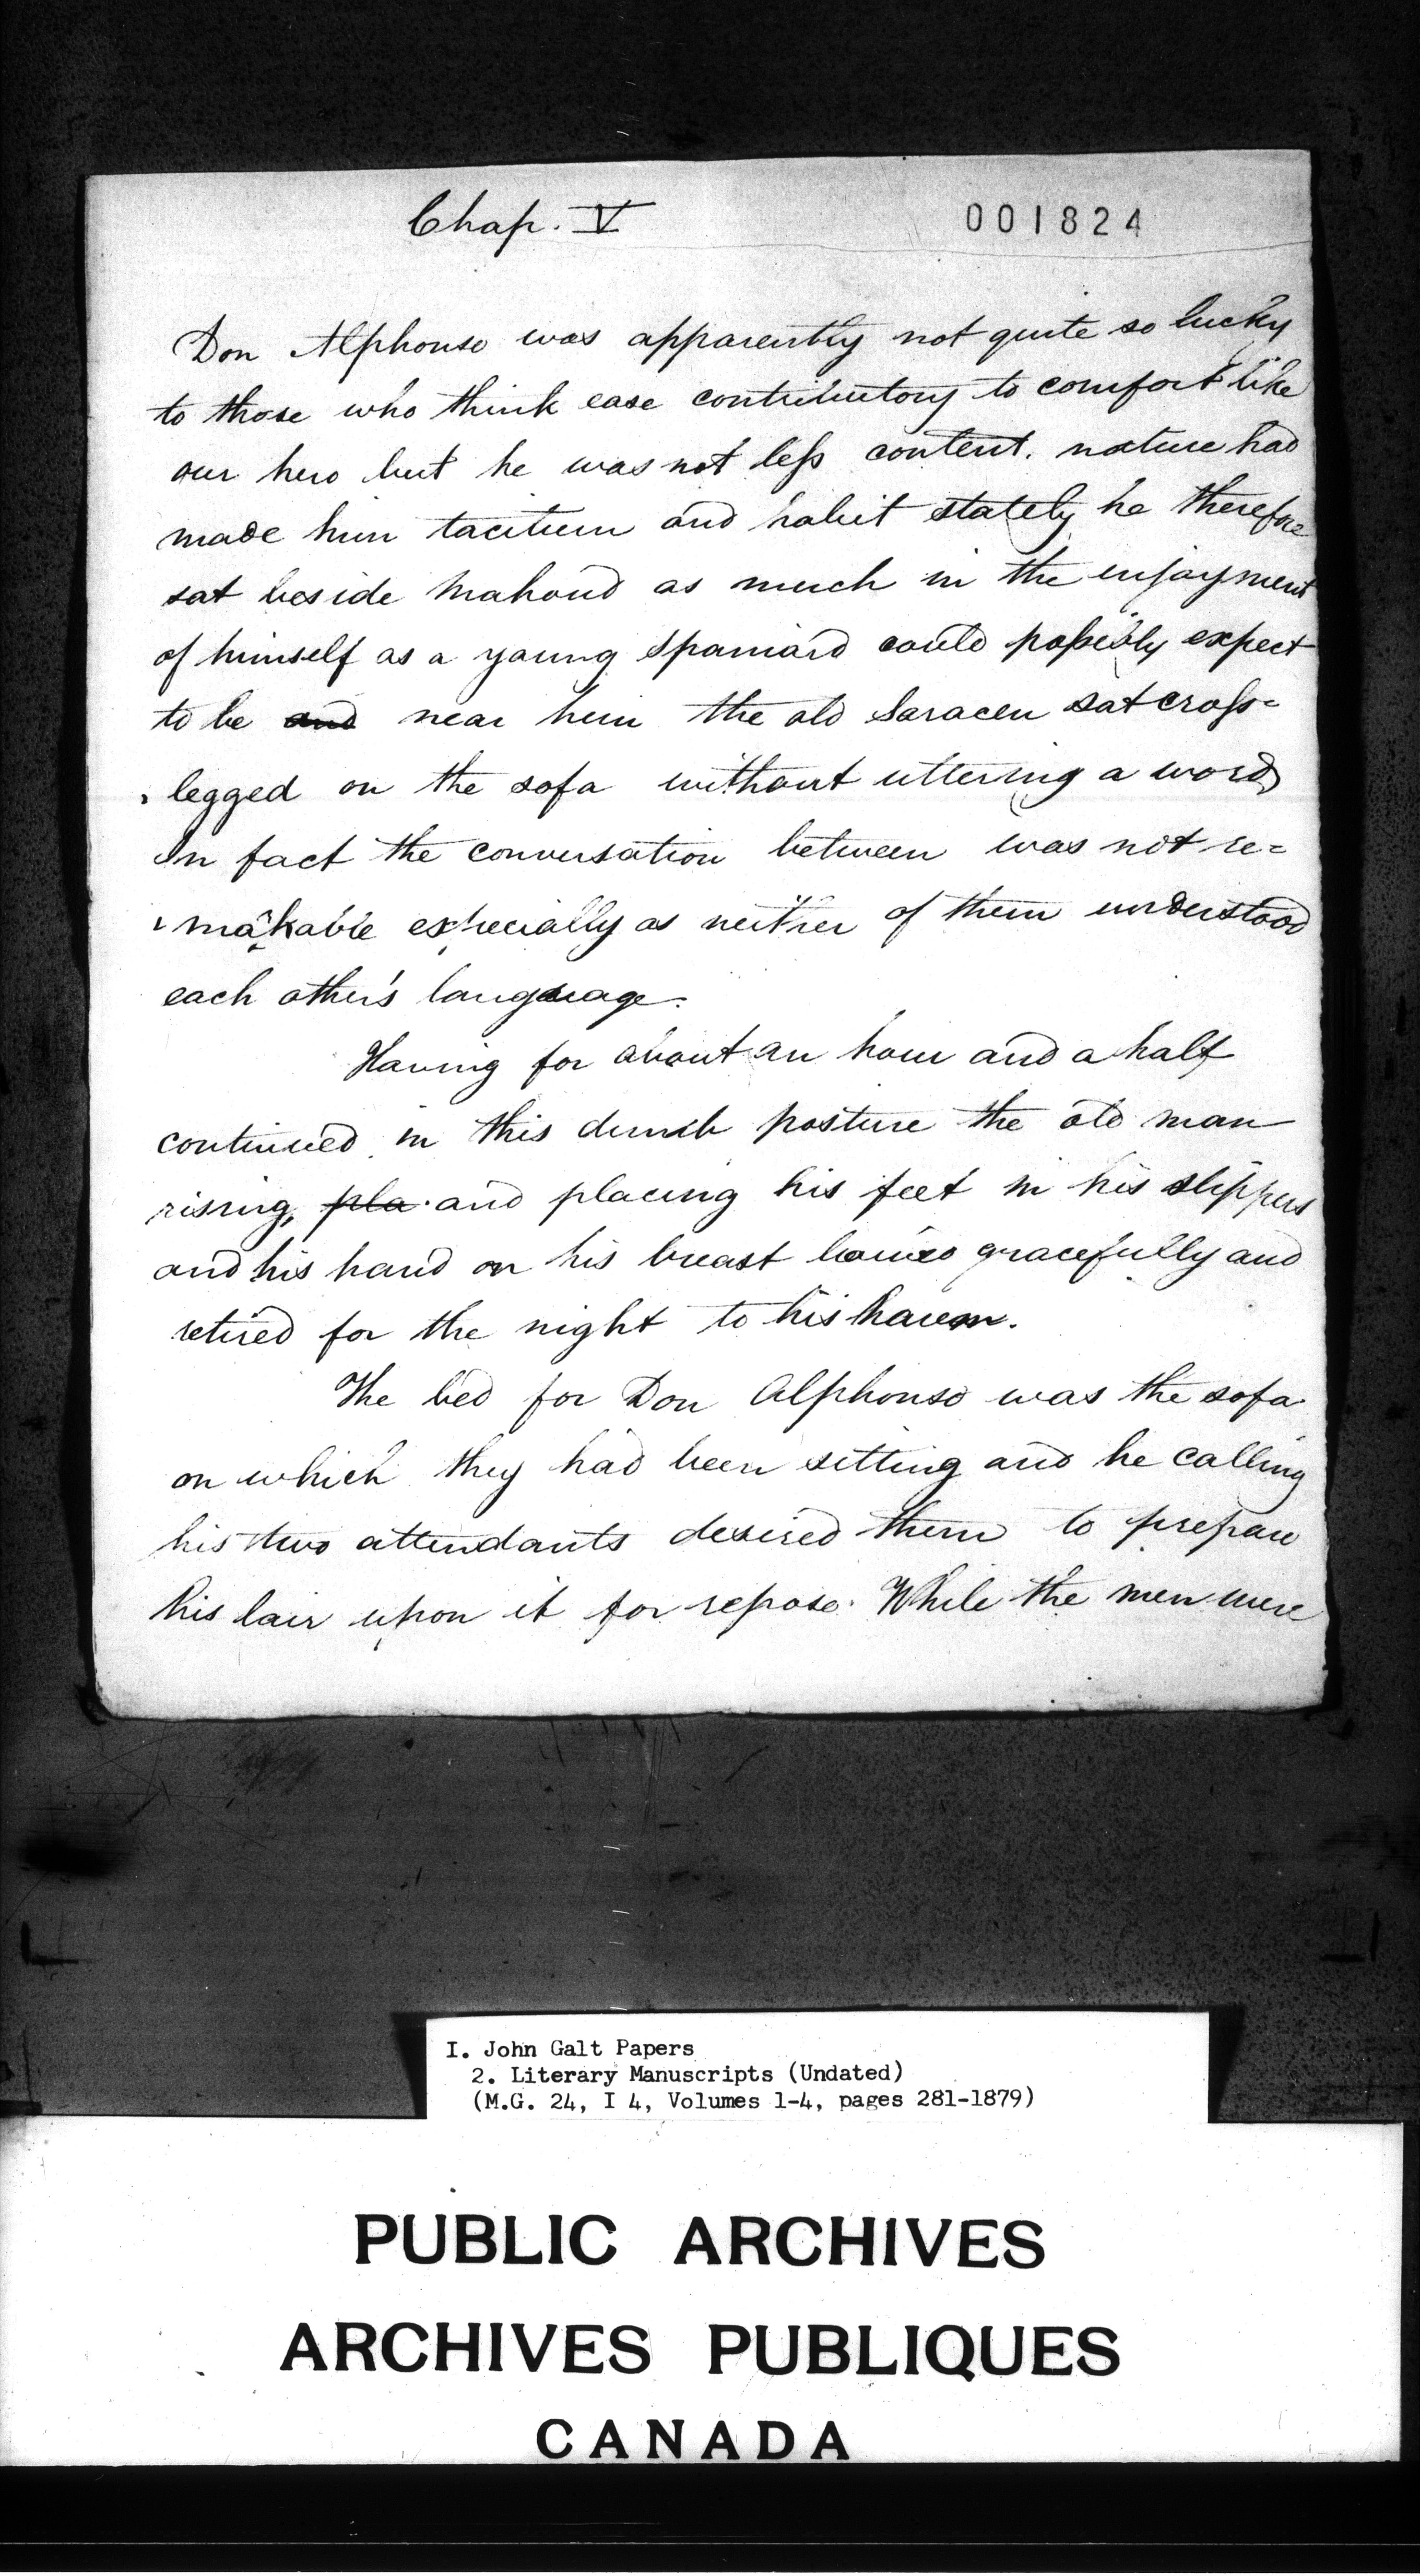 Chap. V
001824
Don Alphonso was apparently not quite so lucky
to those who think ease contributory to comfort like
our hero but he was not less content. nature had
made him taciturn and habit stately he therefore
sat beside Mahoud as much in the enjoyment
of himself as a young Spaniard could possibly expect
to be and near him the old Saracen sat cross=
legged on the sofa without uttering a word
In fact the conversation between was not re=
markable especially as neither of them understood
each other's language.
Having for about an hour and a half
continued in this dumb posture the old man
rising, pla and placing his feet in his slippers
and his hand on his breast bowed gracefully and
retired for the night to his harem.
The bed for Don Alphonso was the sofa
on which they had been sitting and he calling
his two attendants desired them to prepare
his lair upon it for repose. While the men were
I. John Galt Papers
2. Literary Manuscripts (Undated)
(M.G. 24, I 4, Volumes 1-4, pages 281-1879)
PUBLIC ARCHIVES
ARCHIVES PUBLIQUES
CANADA